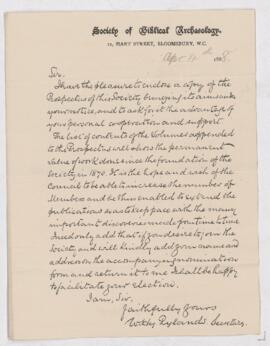 Society of Biblical Archaeology.
11, HART STREET, BLOOMSBURY, W.C.
Apr 11th 188
Sir,
I have the pleasure to enclose a copy of the
Prospectus of this Society bringing its aims under
your notice, and to ask for it the advantage of
your personal cooperation and support.
The list of contents of the Volumes appended
to the Prospectus will shew the permanent
value of work done since the foundation of the
Society in 1870. It is the hope and wish of the
Council to be able to increase the number of
Members and be thus enabled to extend the
publications so as to keep pace with the many
important discoveries made from time to time.
I need only add that if you desire to join the
Society and will kindly add your name and
address on the accompanying nomination
form and return it to me I shall be happy
to facilitate your election.
I am, Sir,
Faithfully yours
W. Rylands Secretary.